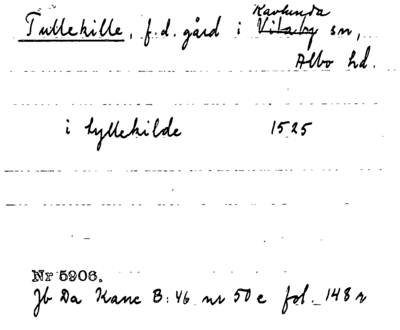 Ravlunda
Tullekille, f.d. gård i Vitaby sn,
Albo hd.
i tyllekilde 1525
Nr 5906.
Jb Da Kanc B:46 nr 50 e fol. 148 r